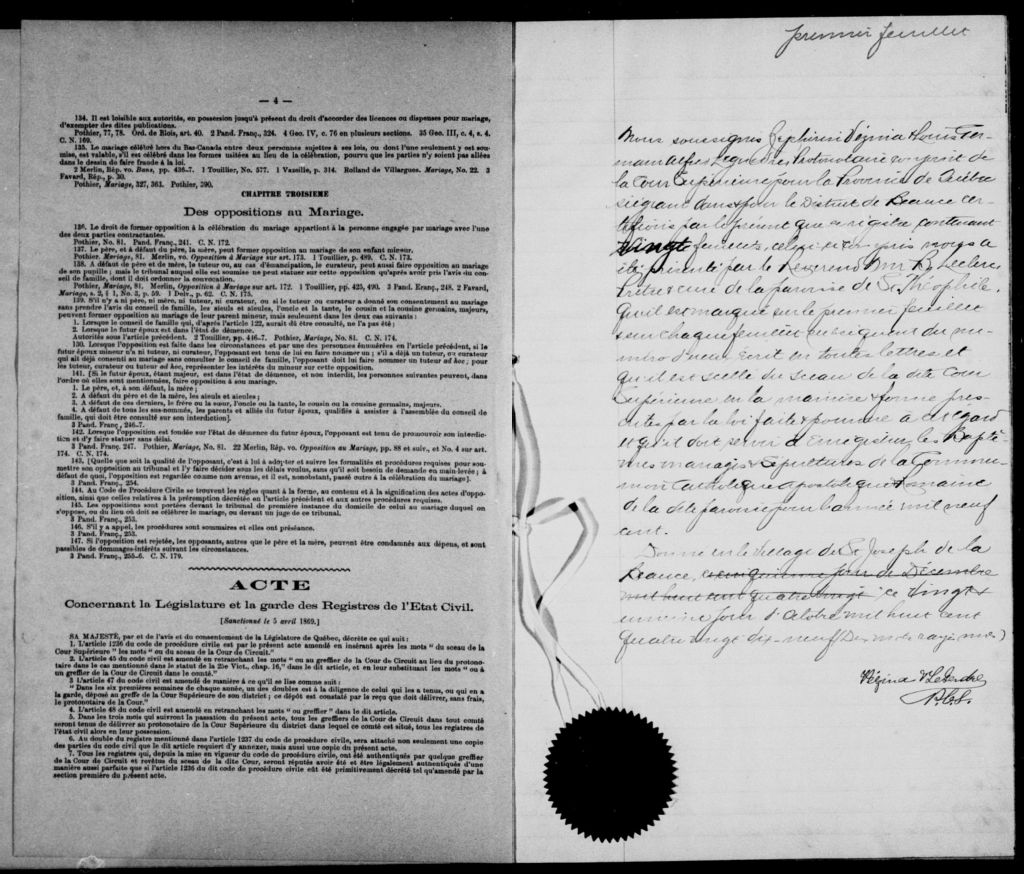 — 4 —
134. Il est loisible aux autorités, en possession jusqu'à présent du droit d'accorder des licences ou dispenses pour mariage,
d'exempter des dites publications.
Pothier, 77, 78. Ord. de Blois, art. 40. 2 Pand. Franç., 324. 4 Geo. IV, c. 76 en plusieurs sections. 35 Geo. III, c. 4, s. 4.
C. N. 169.
135. Le mariage célébré hors du Bas-Canada entre deux personnes sujettes à ses lois, ou dont l'une seulement y est sou-
mise, est valable, s'il est célébré dans les formes usitées au lieu de la célébration, pourvu que les parties n'y soient pas allées
dans le dessin de faire fraude à la loi.
2 Merlin, Rép. vo. Bans, pp. 436-7. 1 Touillier, No. 577. 1 Vazeille, p. 314. Rolland de Villargues. Mariage, No. 22. 3
Favard, Rép., p. 30.
Pothier, Mariage, 327, 363. Pothier, 390.
CHAPITRE TROISIEME
Des oppositions au Mariage.
136. Le droit de former opposition à la célébration du mariage appartient à la personne engagée par mariage avec l'une
des deux parties contractantes.
Pothier, No. 81. Pand. Franç., 241. C. N. 172.
137. Le père, et à défaut du père, la mère, peut former opposition au mariage de son enfant mineur.
Pothier, Mariage, 81. Merlin, vo. Opposition à Mariage sur art. 173. 1 Touillier, p. 489. C. N. 173.
138. A défaut de père et de mère, le tuteur ou, au cas d'émancipation, le curateur, peut aussi faire opposition au mariage
de son pupille; mais le tribunal auquel elle est soumise ne peut statuer sur cette opposition qu'après avoir pris l'avis du con-
seil de famille, dont il doit ordonner la convocation.
Pothier, Mariage, 81. Merlin, Opposition à Mariage sur art. 172. 1 Touillier, pp. 425, 490. 3 Pand. Franç., 248. 2 Favard,
Mariage, s. 2, § 1, No. 3, p. 59. 1 Delv., p. 62. C. N. 175.
139. S'il n'y a ni père, ni mère, ni tuteur, ni curateur, ou si le tuteur ou curateur a donné son consentement au mariage
sans prendre l'avis du conseil de famille, les aïeuls et aïeules, l'oncle et la tante, le cousin et la cousine germains, majeurs,
peuvent former opposition au mariage de leur parent mineur, mais seulement dans les deux cas suivants:
1. Lorsque le conseil de famille qui, d'après l'article 122, aurait dû être consulté, ne l'a pas été;
2. Lorsque le futur époux est dans l'état de démence.
Autorités sous l'article précédent. 2 Touillier, pp. 416-7. Pothier, Mariage, No. 81. C. N. 174.
130. Lorsque l'opposition est faite dans les circonstances et par une des personnes énumérées en l'article précédent, si le
futur époux mineur n'a ni tuteur, ni curateur, l'opposant est tenu de lui en faire nommer un; s'il a déjà un tuteur, ou curateur
qui ait déjà consenti au mariage sans consulter le conseil de famille, l'opposant doit lui faire nommer un tuteur ad hoc; pour
les tuteur, curateur ou tuteur ad hoc, représenter les intérêts du mineur sur cette opposition.
141. [Si le futur époux, étant majeur, est dans l'état de démence, et non interdit, les personnes suivantes peuvent, dans
l'ordre où elles sont mentionnées, faire opposition à son mariage.
1. Le père, et, à son défaut, la mère;
2. A défaut du père et de la mère, les aïeuls et aïeules;
3. A défaut de ces derniers, le frère ou la sœur, l'oncle ou la tante, le cousin ou la cousine germains, majeurs.
4. A défaut de tous les sus-nommés, les parents et alliés du futur époux, qualifiés à assister à l'assemblée du conseil de
famille, qui doit être consulté sur son interdiction]
3 Pand. Franç., 246-7.
142. Lorsque l'opposition est fondée sur l'état de démence du futur époux, l'opposant est tenu de promouvoir son interdic-
tion et d'y faire statuer sans délai.
3 Pand. Franç. 247. Pothier, Mariage, No. 81. 22 Merlin, Rép. vo. Opposition au Mariage, pp. 88 et suiv., et No. 4 sur art.
174. C. N. 174.
143. [Quelle que soit la qualité de l'opposant, c'est à lui à adopter et suivre les formalités et procédures requises pour sou-
mettre son opposition au tribunal et l'y faire décider sous les délais voulus, sans qu'il soit besoin de demande en main-levée; à
défaut de quoi, l'opposition est regardée comme non avenue, et il est, nonobstant, passé outre à la célébration du mariage].
3 Pand. Franç., 254.
144. Au Code de Procédure Civile se trouvent les règles quant à la forme, au contenu et à la signification des actes d'oppo-
sition, ainsi que celles relatives à la péremption décrétée en l'article précédent et aux autres procédures requises.
145. Les oppositions sont portées devant le tribunal de première instance du domicile de celui au mariage duquel on
s'oppose, ou du lieu où doit se célébrer le mariage, ou devant un juge de ce tribunal.
3 Pand. Franç., 253.
146. S'il y a appel, les procédures sont sommaires et elles ont préséance.
3 Pand. Franç., 253.
147. Si l'opposition est rejetée, les opposants, autres que le père et la mère, peuvent être condamnés aux dépens, et sont
passibles de dommages-intérêts suivant les circonstances.
3 Pand. Franç., 255-6. C. N. 179.
ACTE
Concernant la Législature et la garde des Registres de l'Etat Civil.
[Sanctionné le 5 avril 1869.]
SA MAJESTÉ, par et de l'avis et du consentement de la Législature de Québec, décrète ce qui suit:
1. L'article 1236 du code de procédure civile est par le présent acte amendé en insérant après les mots " du sceau de la
Cour Supérieure " les mots " ou du sceau de la Cour de Circuit."
2. L'article 45 du code civil est amendé en retranchant les mots " ou au greffier de la Cour de Circuit au lieu du protono-
taire dans le cas mentionné dans le statut de la 25e Vict., chap. 16," dans le dit article, et en leur substituant les mots " ou à
un greffier de la Cour de Circuit dans le comté."
3 L'article 47 du code civil est amendé de manière à ce qu'il se lise comme suit:
" Dans les six premières semaines de chaque année, un des doubles est à la diligence de celui qui les a tenus, ou qui en a
la garde, déposé au greffe de la Cour Supérieure de son district; ce dépôt est constaté par le reçu que doit délivrer, sans frais,
le protonotaire de la Cour."
4. L'article 48 du code civil est amendé en retranchant les mots " ou greffier " dans le dit article.
5. Dans les trois mois qui suivront la passation du présent acte, tous les greffiers de la Cour de Circuit dans tout comté
seront tenus de délivrer au protonotaire de la Cour Supérieure du district dans lequel ce comté est situé, tous les registres de
l'état civil alors en leur possession.
6. Au double du registre mentionné dans l'article 1237 du code de procédure civile, sera attaché non seulement une copie
des parties du code civil que le dit article requiert d'y annexer, mais aussi une copie du présent acte.
7. Tous les registres qui, depuis la mise en vigueur du code de procédure civile, ont été authentiqués par quelque greffier
de la Cour de Circuit et revêtus du sceau de la dite Cour, seront réputés avoir été et être légalement authentiqués d'une
manière aussi parfaite que si l'article 1236 du dit code de procédure civile eût été primitivement décrété tel qu'amendé par la
section première du présent acte.
premier feuillet
Nous soussignés Zephirin Vézina & Louis Fer-
Protonotaire conjoint de
la Cour Supérieure pour la Province de Québec
siégeant dans & pour le District de Beauce cer-
tifions par le présent que ce registre contenant
Vingt feuillets, celui-ci compris nous a
été présenté par le Révérend Mr Leclerc
Prêtre & curé de la paroisse de St Théophile,
qu'il est marqué sur le premier feuillet
& sur chaque feuillet subséquent du nu-
méro d'icelui écrit en toutes lettres et
qu'il est scellé du sceau de la dite Cour
Supérieure en la manière & forme pres-
crites par la loi faite & pourvue à cet égard
et qu'il doit servir à Enregistrer les Baptê-
mes mariages & Sépultures de la Commu-
nion Catholique apostolique & romaine
de la dite paroisse pour l'année mil neuf
cent.
Donné en le Village de St Joseph de la
Beauce, ce jour de Décembre
mil huit cent quatre vingt ce Vingt &
unième jour d'Octobre mil huit cent
quatre vingt dix-neuf (Dix mots rayés nuls)
Vézina & Legendre
P.C.S.